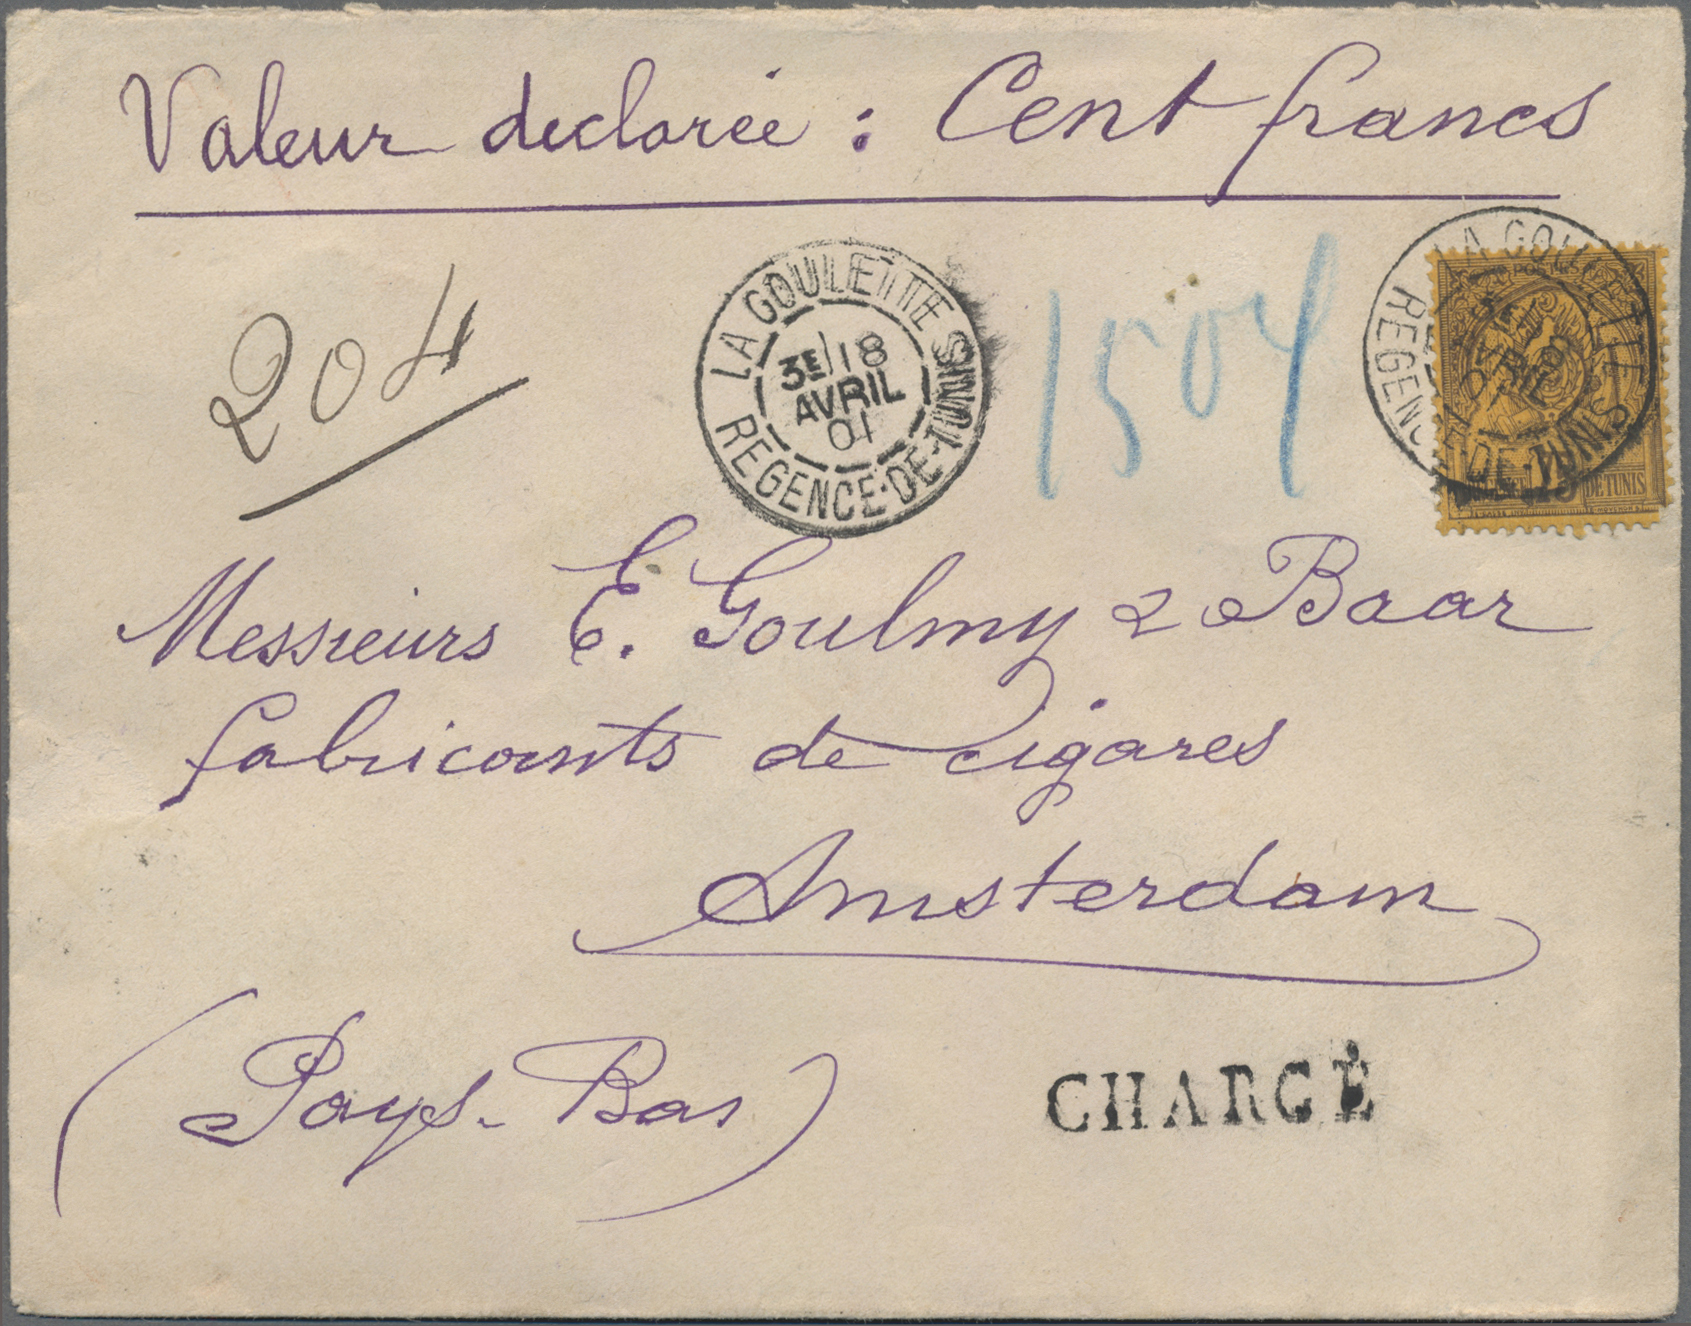 Valeur declarée : Cent francs
204
LA GOULETTE
3E/18
AVRIL
01
REGENCE-DE-TUNIS
1504
LA GOULETTE
AVRIL
01
REGENCE-DE-TUNIS
75
DE TUNIS
Messieurs E. Goulmy & Baar
fabricants de cigares
Amsterdam
(Pays-Bas)
CHARGÉ